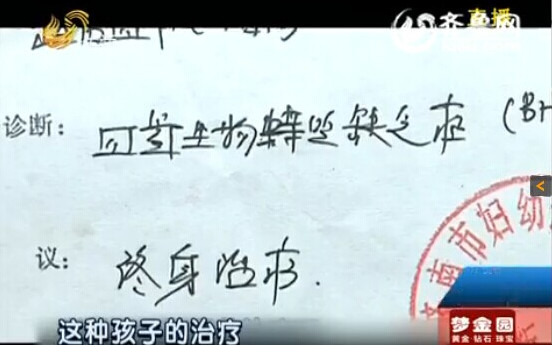 直播
齐鲁网
诊断: 四氢生物蝶呤缺乏症 (BH
议: 终身治疗.
济南市妇幼
这种孩子的治疗
梦金园
黄金·钻石·珠宝